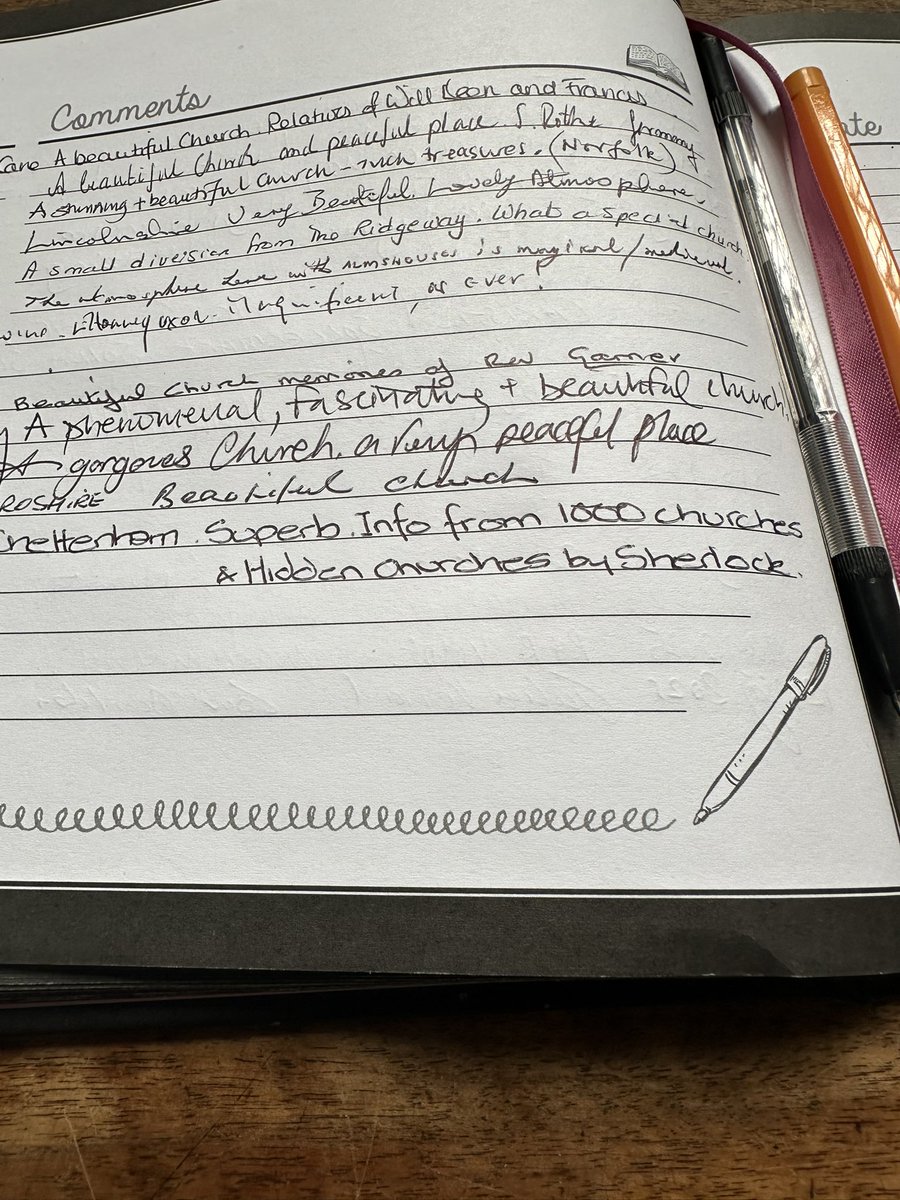 Comments
ate
A beautiful Church. Relatives of Will and Francis
A beautiful Church and peaceful place S. Rothe
A stunning + beautiful church - such treasures. (Norfolk)
Lincolnshire Very Beautiful. Lovely Atmosphere.
A small diversion from the Ridgeway. What a special church
The atmosphere here with ALMSHOUSES is magical/medieval.
Magnificent, as ever!
Beautiful church memories of Rev Garner
A phenomenal, fascinating + beautiful church.
A gorgeous Church. a very peaceful place
ROSHIRE Beautiful church
Cheltenham. Superb. Info from 1000 churches
& Hidden Churches by Sherlock.